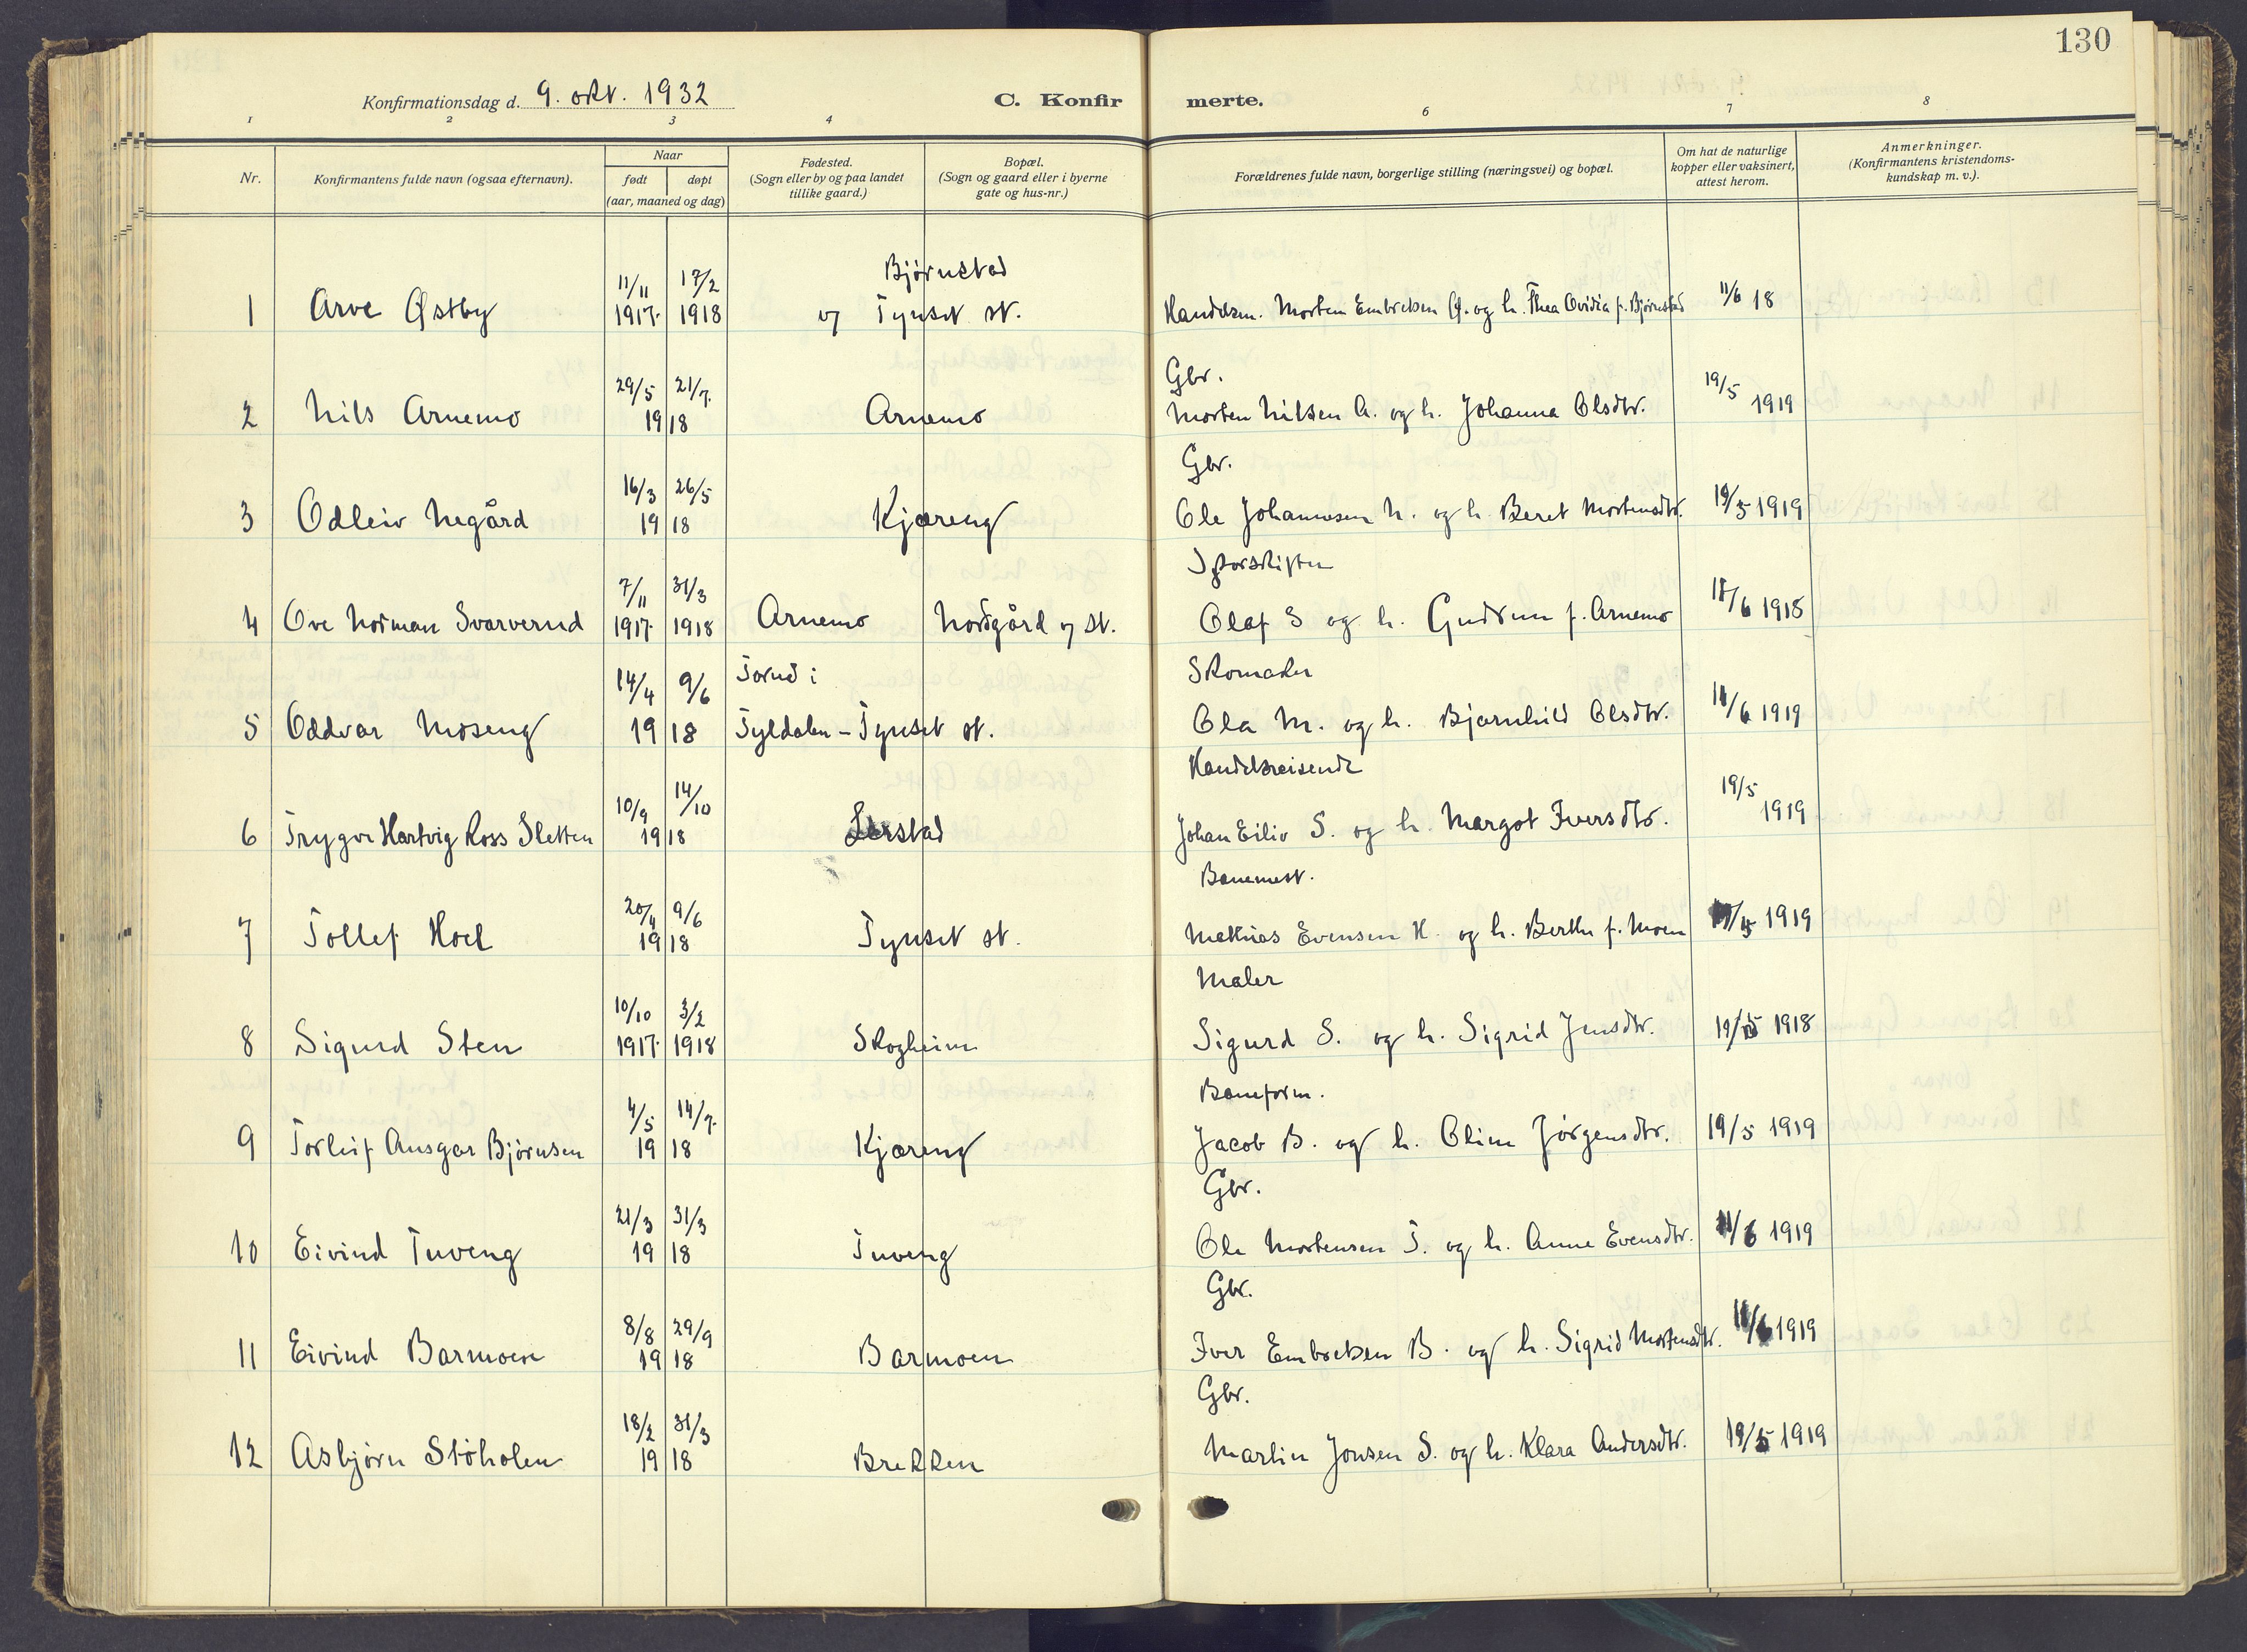 130
Konfirmationsdag d. 9. okt. 1932
C. Konfirmerte.
1 2 3 4 6 7 8
Nr.
Konfirmantens fulde navn (ogsaa efternavn).
Naar
født døpt
(aar, maaned og dag)
Fødested.
(Sogn eller by og paa landet
tillike gaard.)
Bopæl.
(Sogn og gaard eller i byerne
gate og hus-nr.)
Forældrenes fulde navn, borgerlige stilling (næringsvei) og bopæl.
Om hat de naturlige
kopper eller vaksinert,
attest herom.
Anmerkninger.
(Konfirmantens kristendoms-
kundskap m. v.).
11/11 17/2 Bjørnstad
1 Arve Østby 1917 1918 og Tynset st. Handelsm. Morten Embretsen Ø. og h. Thea Ovidia f. Bjørnstad 11/6 18
29/5 21/7 Gbr. 19/5
2 Nils Arnemo 1918 Arnemo Morten Nilsen A. og h. Johanna Olsdtr. 1919
16/3 26/5 Gbr.
3 Odleiv Negård 1918 Kjæreng Ole Johannesen N. og h. Beret Mortensdtr. 19/5 1919
7/11 31/3 Sporskifter
4 Ove Norman Svarverud 1917 1918 Arnemo Nordgård og st. Olaf S og h. Gudrun f. Arnemo 18/6 1918
14/4 9/6 Torud i Skomaker
5 Oddvar Moseng 1918 Tyldalen - Tynset st. Ola M. og h. Bjørnhild Olsdtr. 11/6 1919
10/9 14/10 Handelsreisende 19/5
6 Trygve Hartvig Ross Sletten 1918 Johan Eiliv S. og h. Margot Iversdtr. 1919
20/4 9/6 Banemest.
7 Tollef Hoel 1918 Tynset st. Mathias Evensen H. og h. Berthe f. Moen 1919
10/10 3/2 Maler
8 Sigurd Sten 1917 1918 Skogheim Sigurd S. og h. Sigrid Jensdtr. 19/5 1918
4/5 14/7 Baneform.
9 Torleif Ansgar Bjørnsen 1918 Kjæreng Jacob B. og h. Oline Jørgensdtr. 19/5 1919
21/3 31/3 Gbr.
10 Eivind Tuveng 1918 Tuveng Ole Mortensen T. og h. Anne Evensdtr. 11/6 1919
8/8 29/9 Gbr.
11 Eivind Barmoen 1918 Barmoen Iver Embretsen B. og h. Sigrid Mortensdtr. 11/6 1919
18/2 31/3 Gbr.
12 Asbjørn Støholen 1918 Brekken Martin Jonsen S. og h. Klara Andersdtr. 19/5 1919